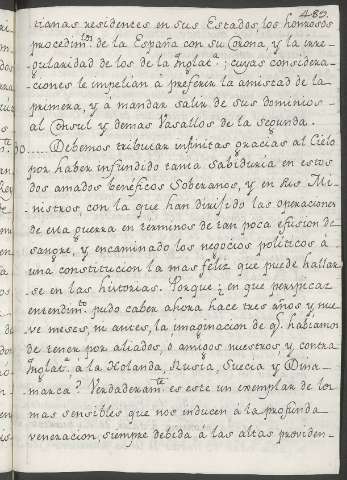 489.
tianas residentes en sus Estados, los honrosos
procedim.tos de la España con su Corona, y la irre-
gularidad de los de la Ynglat.a; cuyas considera-
ciones le impelian á preferir la amistad de la
primera, y á mandar salir de sus dominios
al Consul y demas Vasallos de la segunda.
Debemos tributar infinitas gracias al Cielo
por haber infundido tanta sabiduria en estos
dos amados beneficos Soberanos, y en sus Mi-
nistros, con la que han dirijido las operaciones
de esta guerra en términos de tan poca efusion de
sangre, y encaminado los negocios politicos á
una constitucion la mas feliz que puede hallar
se en las historias. Porque ¿en que perspicaz
entendim.to pudo caber ahora hace tres años y nue
ve meses, ni antes, la imaginacion de q.e habiamos
de tener por aliados, ó amigos nuestros y contra
Ynglat.a á la Holanda, Rusia, Suecia y Dina
marca? Verdaderam.te es este un exemplar de los
mas sensibles que nos inducen á la profunda
veneracion, siempre debida á las altas providen-